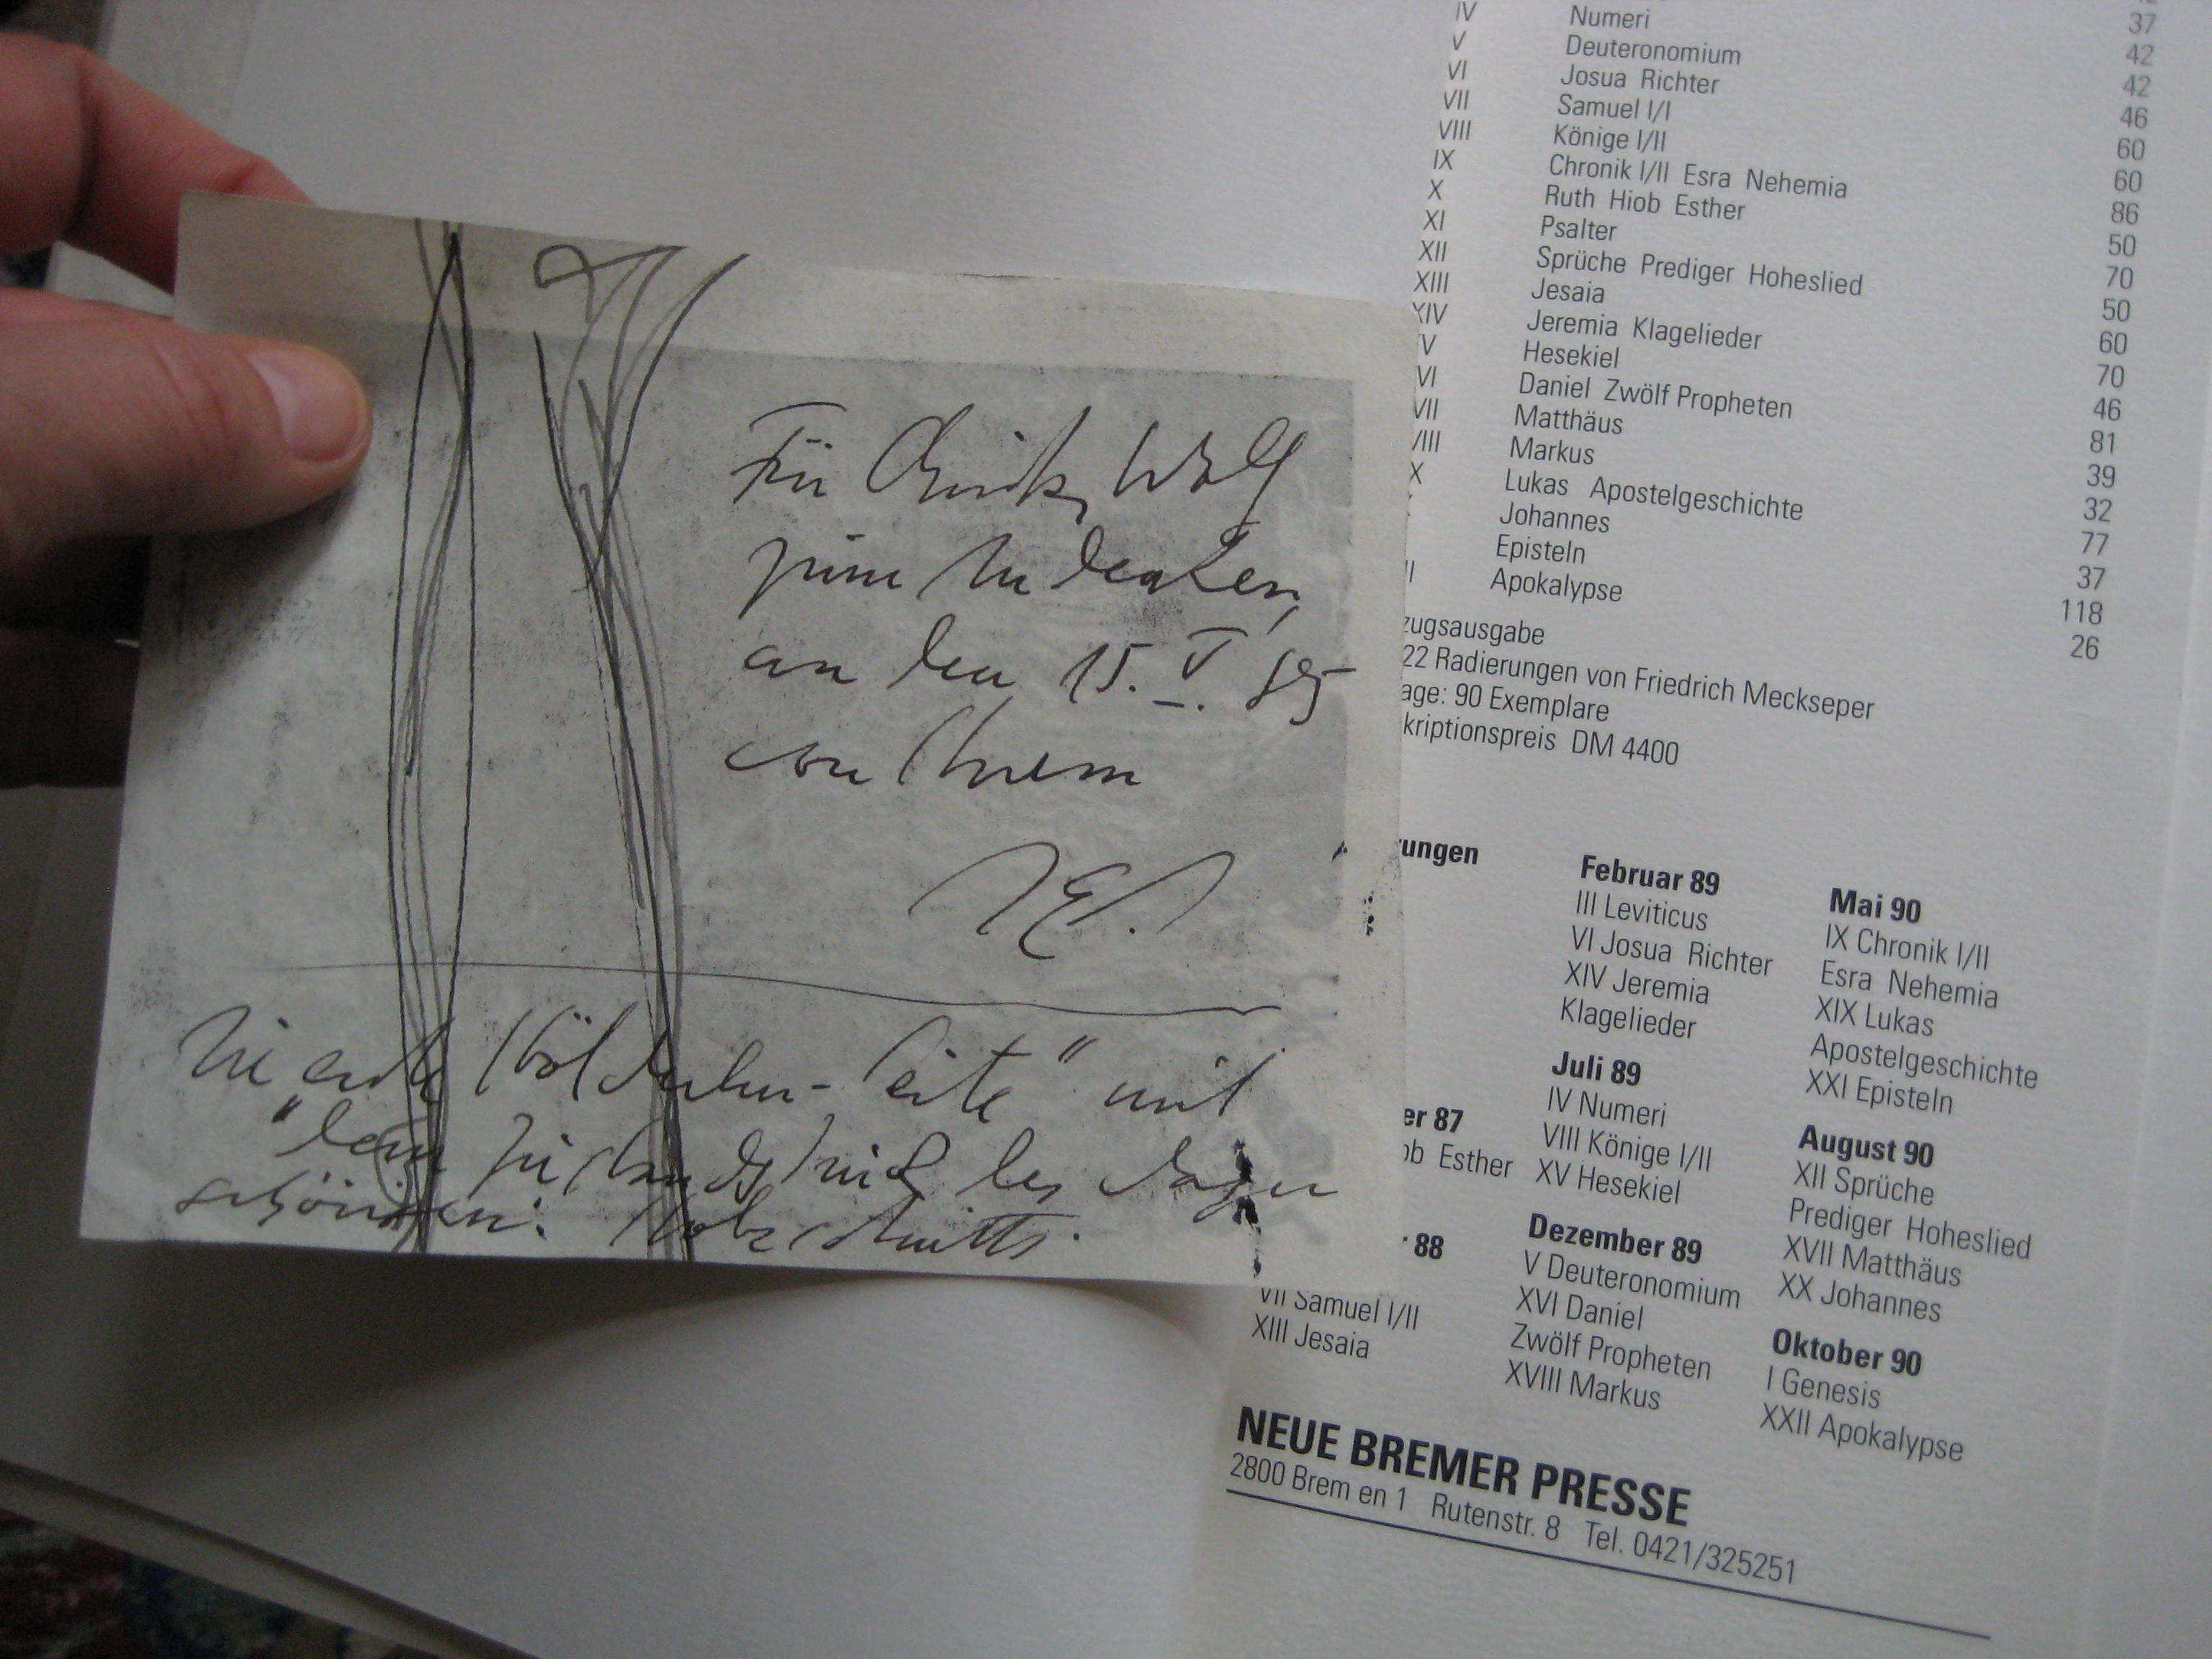 Für Christa Wolf
zum Andenken
an den 15. V. 85
von Ihrem
mit
des
Holzschnitts.
IV Numeri 37
V Deuteronomium 42
VI Josua Richter 42
VII Samuel I/I 46
VIII Könige I/II 60
IX Chronik I/II Esra Nehemia 60
X Ruth Hiob Esther 86
XI Psalter 50
XII Sprüche Prediger Hoheslied 70
XIII Jesaia 50
XIV Jeremia Klagelieder 60
V Hesekiel 70
VI Daniel Zwölf Propheten 46
VII Matthäus 81
VIII Markus 39
X Lukas Apostelgeschichte 32
Johannes 77
Episteln 37
I Apokalypse 118
26
zugsausgabe
22 Radierungen von Friedrich Meckseper
age: 90 Exemplare
kriptionspreis DM 4400
ungen
er 87
ob Esther
88
VII Samuel I/II
XIII Jesaia
Februar 89
III Leviticus
VI Josua Richter
XIV Jeremia
Klagelieder
Juli 89
IV Numeri
VIII Könige I/II
XV Hesekiel
Dezember 89
V Deuteronomium
XVI Daniel
Zwölf Propheten
XVIII Markus
Mai 90
IX Chronik I/II
Esra Nehemia
XIX Lukas
Apostelgeschichte
XXI Episteln
August 90
XII Sprüche
Prediger Hoheslied
XVII Matthäus
XX Johannes
Oktober 90
I Genesis
XXII Apokalypse
NEUE BREMER PRESSE
2800 Brem en 1 Rutenstr. 8 Tel. 0421/325251